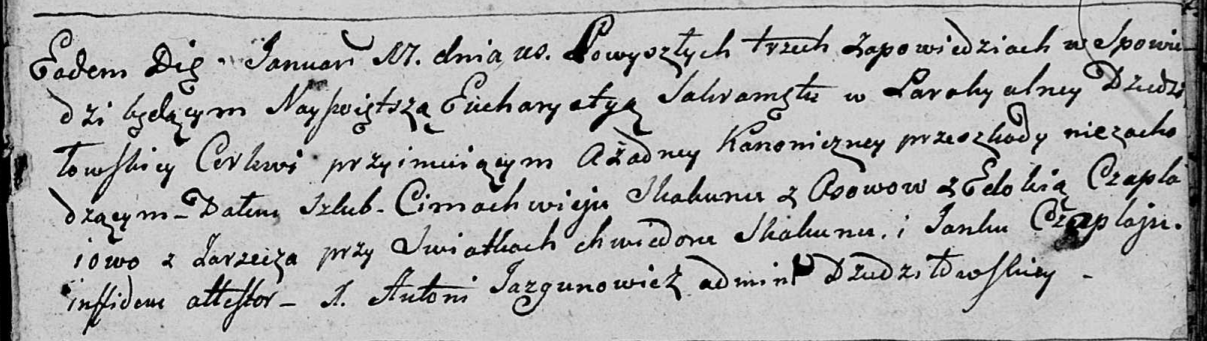 Eadem Die Januari 17. dnia us. Powyszłych trzech Zapowiedziach w Spowie
dzi będącym Nayświętszą Eucharystyą Sakramętu w Parohyalney Dziedzi
łowskiey Cerkwi przyimuiącym A żadney Kanoniczney przeszkody niezacho
dzącym - Dałem szlub - Cimochwieju Skakunu z Osowow z Edokią Czapla
iowo z Zarzecza przy Swiatkach chwiedoru Skakunu. i Janku Czaplaju.
in fidem attestor - X. Antoni Jazgunowicz admin Dziedziłowskiey -